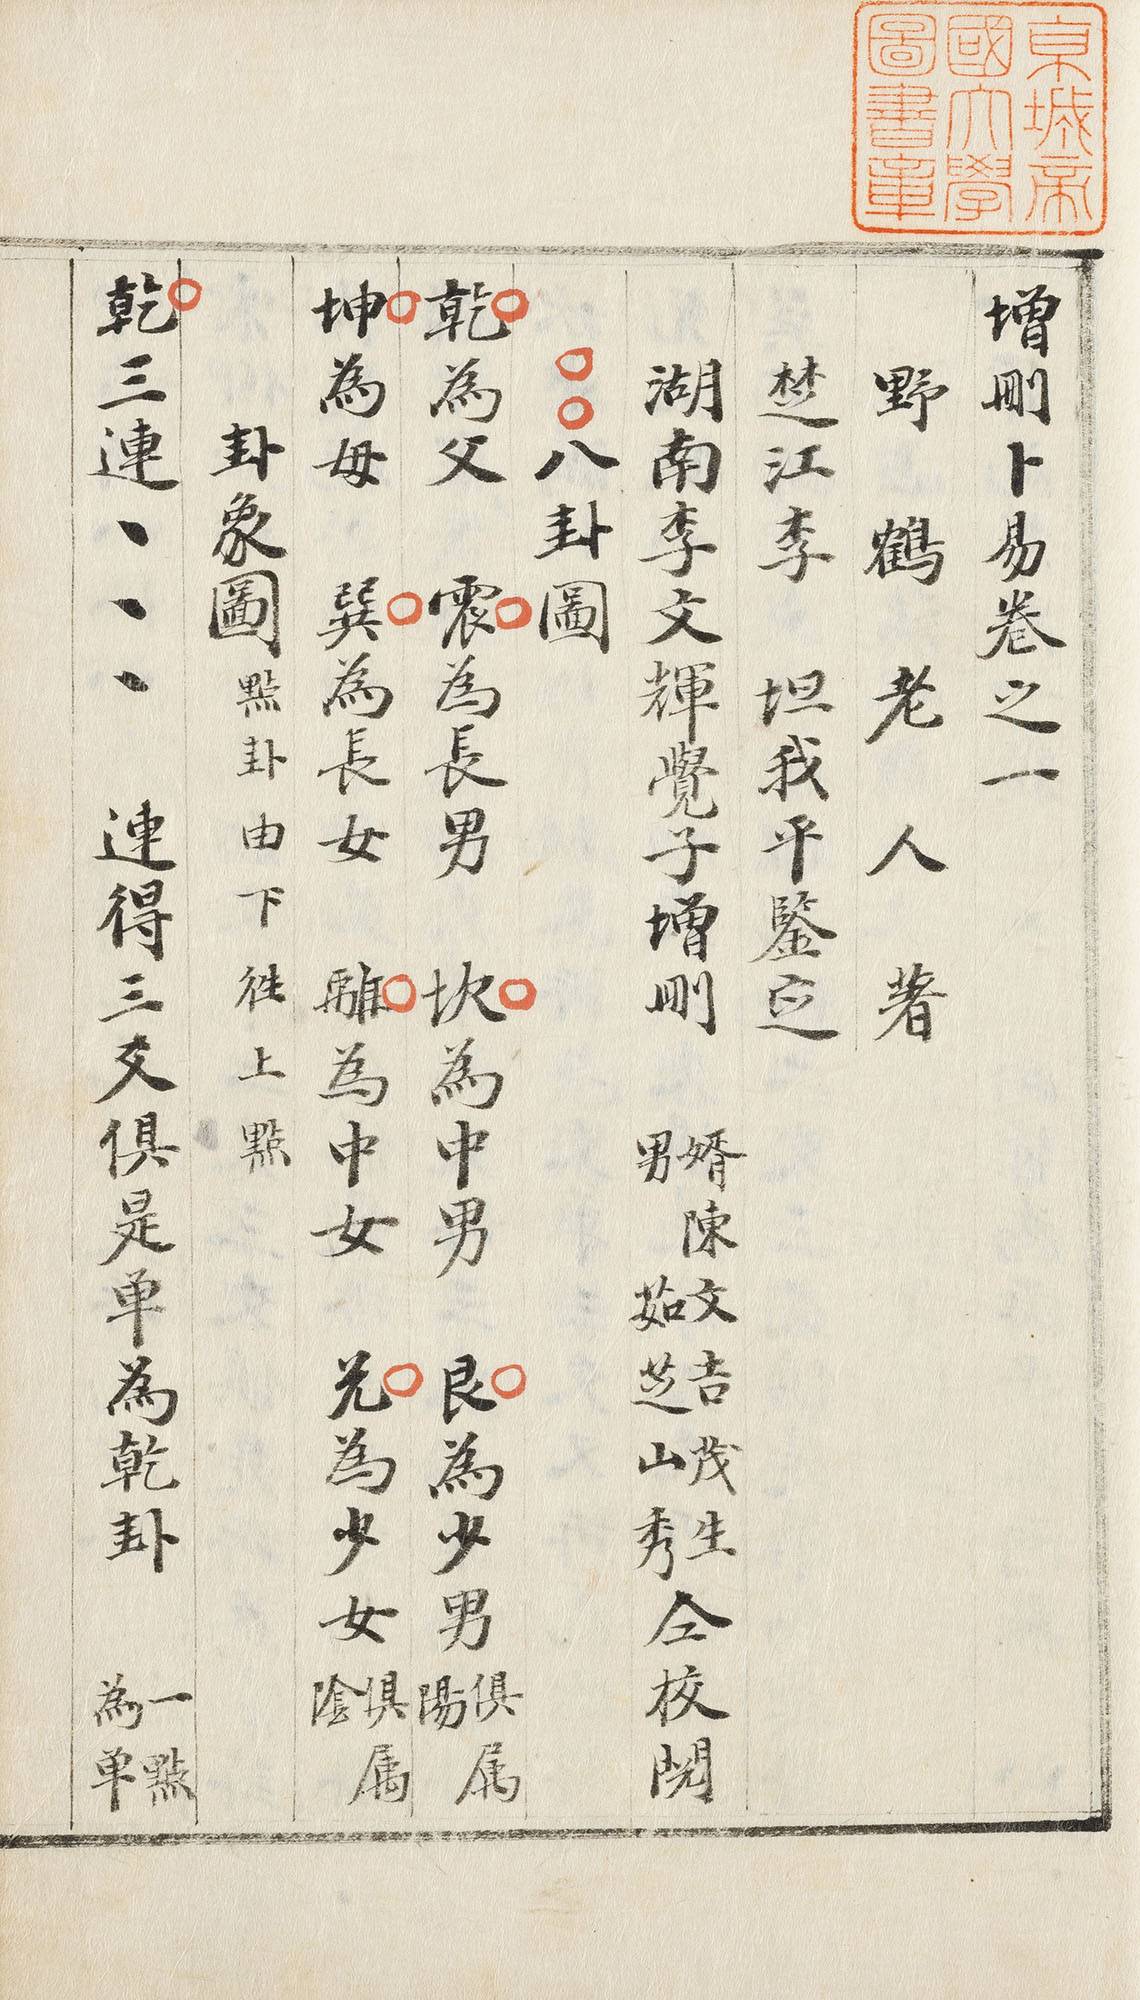 京城帝
國大學
圖書章
增刪卜易卷之一
野鶴老人著
楚江李 坦我平鑒定
湖南李文輝覺子增刪 婿陳文吉茂生 男茹芝山秀 仝校閱
○○八卦圖
乾○為父 震○為長男 坎○為中男 艮○為少男 俱属陽
坤○為母 巽○為長女 離○為中女 兑○為少女 俱属陰
卦象圖 點卦由下徃上點
乾○三連丶丶丶 連得三爻俱是单為乾卦 一點為单